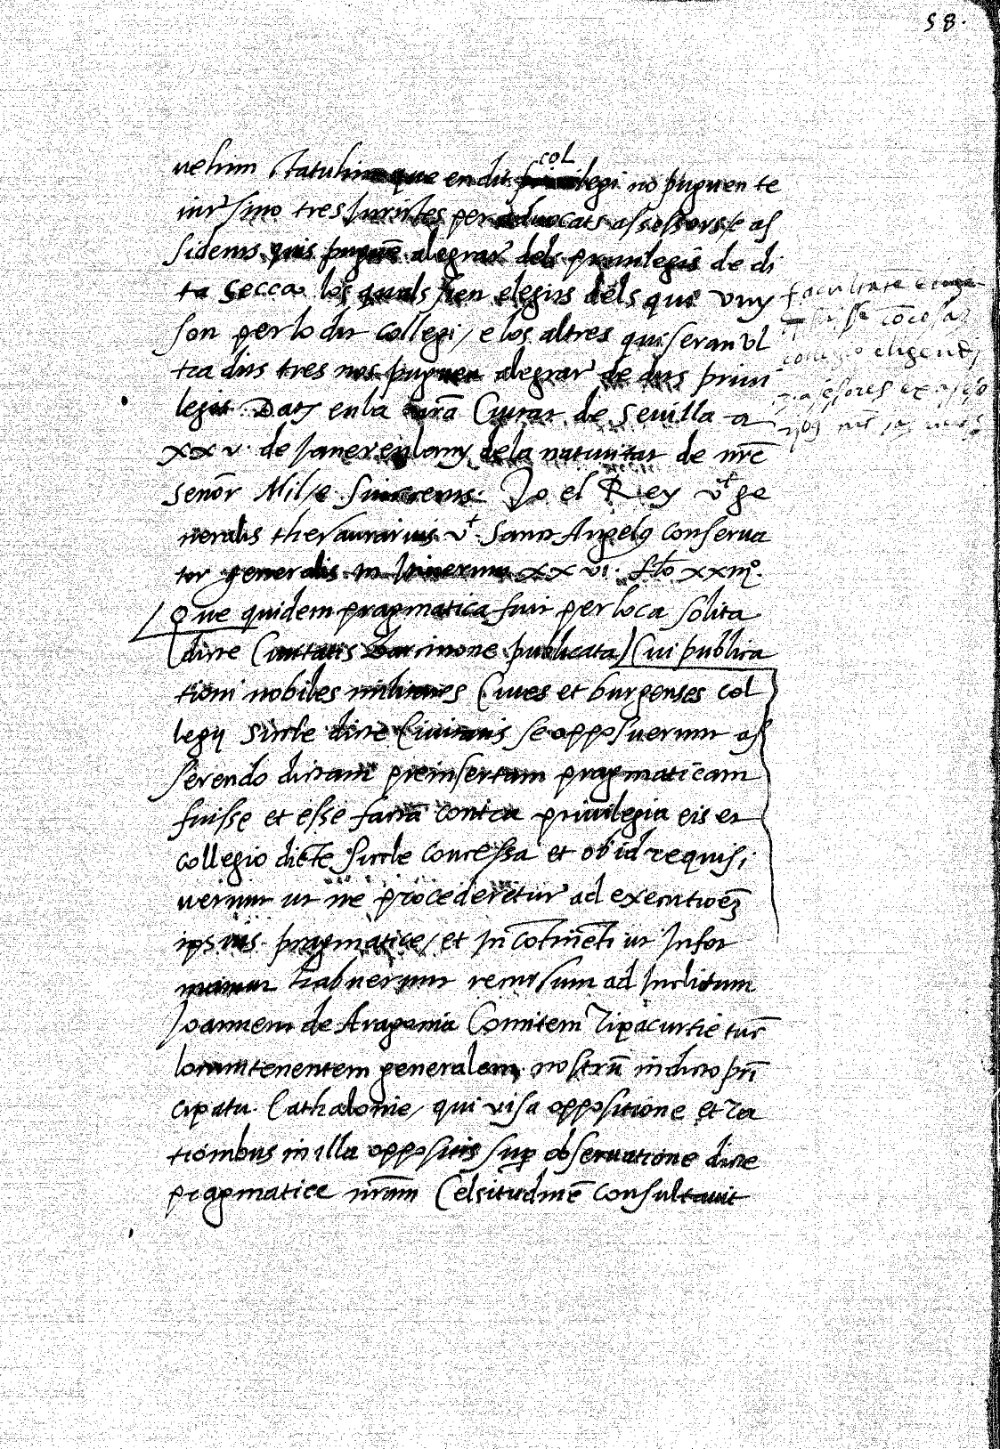 58.
col
vehim statuhim que en dit legi no puguen te
nir sino tres Juristes per advocats assessors e as
sidents quis puguē alegrar dels privilegis de di
ta Secca los quals sien elegits dels qui vuy
son per lo dit collegi / e los altres qui seran ultra
dits tres nos puguen alegrar de dits privi
legis. Daty en la nrā Ciutat de Sevilla a
xxv. de Janer en lany dela nativitat de nre
senōr Mil se Jo el Rey vt ge
neralis thesaurarius. vt. Sanct Angelꝰ conserva
tor generalis. In Itinerum xxvi. fło xxiiij.
Que quidem pragmatica fuit per loca solita
dicte Civitatis Barcinone publicata / Cui publica
tioni nobiles milites Cives et burgenses col
legij Sicche dicte Civitatis se opposuerunt as
serendo dictam preinsertam pragmaticam
fuisse et esse factā contra privilegia eis et
collegio dicte Sicche concessa et ob id requisi
verunt ut ne procederetur ad executioēȝ
ipsius pragmatice / et in cōtinēti ut Infor
mamur habuerunt recursum ad Inclitum
Joannem de Aragonia Comitem Ripacurtie tūc
locumtenentem generalem nostrū in dicto prī
cipatu Cathalonie / qui visa oppositione et ra
tionibus in illa oppositis sup observatione dicte
pragmatice nrām Celsitudinē consultavit
facultate
fuisse cōcessa
collegio eligendi
assessores ex